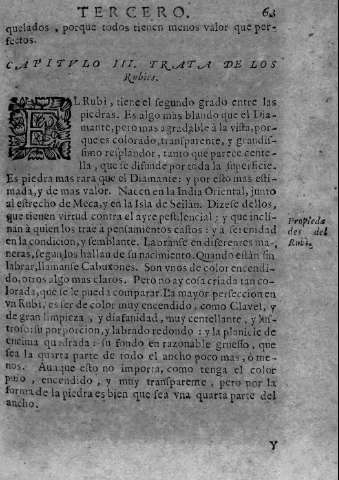 TERCERO. 63
quelados, porque todos tienen menos valor que per-
fectos.
CAPITVLO III. TRATA DE LOS
Rubies.
EL Rubi, tiene el segundo grado entre las
piedras. Es algo mas blando que el Dia-
mante, pero mas agradable à la vista, por-
que es colorado, transparente, y grandis-
simo resplandor, tanto que parece cente-
lla, que se difunde por toda la superficie.
Es piedra mas rara que el Diamante: y por esto mas esti-
mada, y de mas valor. Nacen en la India Oriental, junto
al estrecho de Meca, y en la Isla de Seilàn. Dizese dellos,
que tienen virtud contra el ayre pestilencial: y que incli-
nan à quien los trae à pensamientos castos: y à serenidad
en la condicion, y semblante. Labranse en diferentes ma-
neras, segun los hallan de su nacimiento. Quando estàn sin
labrar, llamanse Cabuxones. Son vnos de color encendi-
do, otros algo mas claros. Pero no ay cosa criada tan co-
lorada, que se le pueda comparar. La mayor perfeccion en
vn Rubi, es ser de color muy encendido, como Clavel, y
de gran limpieza, y diafanidad, muy centellante, y lus-
troso: su porporcion, y labrado redondo: y la planicie de
encima quadrada: su fondo en razonable gruesso, que
sea la quarta parte de todo el ancho poco mas, ò me-
nos. Aunque esto no importa, como tenga el color
puro, encendido, y muy transparente, pero por la
forma de la piedra es bien que sea vna quarta parte del
ancho.
Propieda
des del
Rubi.
Y